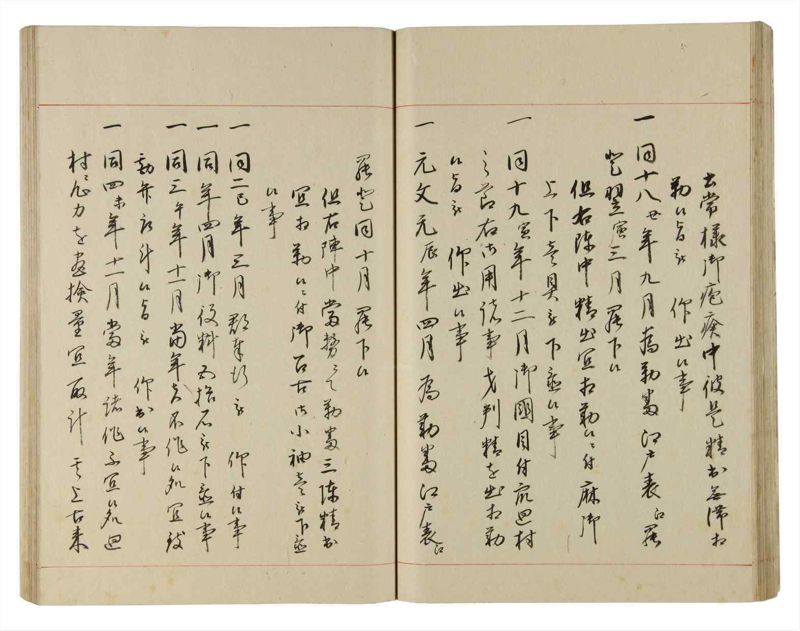 出常様御疱瘡中彼是精出無滞相
勤候旨被 仰出候事
一 同十八丑年九月為勤番江戸表江罷
登翌寅三月罷下候
但右陣中精出宜相勤候ニ付麻御
上下壱具被下置候事
一 同十九寅年十二月御國目付衆廻村
之節右御用諸事才判精を出相勤
候旨被 仰出候事
一 元文元辰年四月為勤番江戸表江
罷登同十月罷下候
但右陣中當勢之勤番三陳精出
宜相勤候ニ付御召古御小袖壱被下置
候事
一 同二巳年三月郡奉行被 仰付候事
一 同年四月御役料五拾石被下置候事
一 同三午年十一月當年免不作候処宜致
勤弁取計候旨被 仰出候事
一 同四未年十一月當年諸作不宜候処廻
村心力を盡検量宜取計 其上古来